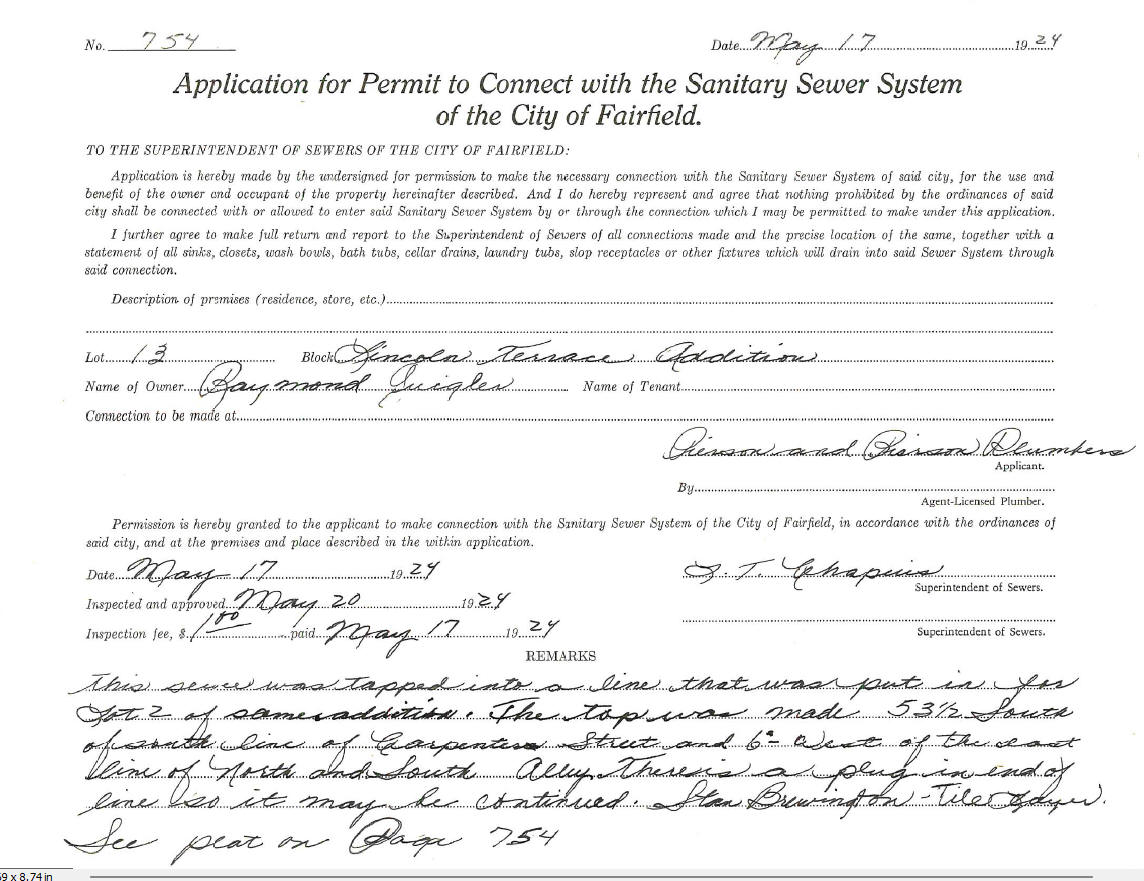 No. 754
Date May 17 1924
Application for Permit to Connect with the Sanitary Sewer System
of the City of Fairfield.
TO THE SUPERINTENDENT OF SEWERS OF THE CITY OF FAIRFIELD:
Application is hereby made by the undersigned for permission to make the necessary connection with the Sanitary Sewer System of said city, for the use and
benefit of the owner and occupant of the property hereinafter described. And I do hereby represent and agree that nothing prohibited by the ordinances of said
city shall be connected with or allowed to enter said Sanitary Sewer System by or through the connection which I may be permitted to make under this application.
I further agree to make full return and report to the Superintendent of Sewers of all connections made and the precise location of the same, together with a
statement of all sinks, closets, wash bowls, bath tubs, cellar drains, laundry tubs, slop receptacles or other fixtures which will drain into said Sewer System through
said connection.
Description of premises (residence, store, etc.)
Lot 13 Block Lincoln Terrace Addition
Name of Owner Raymond Quigler Name of Tenant
Connection to be made at
Pierson and Pierson Plumbers
Applicant.
By
Agent-Licensed Plumber.
Permission is hereby granted to the applicant to make connection with the Sanitary Sewer System of the City of Fairfield, in accordance with the ordinances of
said city, and at the premises and place described in the within application.
Date May 17 1924 T. Chapuis
Superintendent of Sewers.
Inspected and approved May 20 1924
Inspection fee, $ 1.00 paid May 17 1924
Superintendent of Sewers.
REMARKS
This sewer was tapped into a line that was put in for
Lot 2 of same addition. The tap was made 53 1/2 South
of south line of Carpenters Street and 6" West of the east
line of North and South Alley. There is a plug in end of
line so it may be continued. Stan Brewington - Tile Layer.
See plat on Page 754
69 x 8.74 in